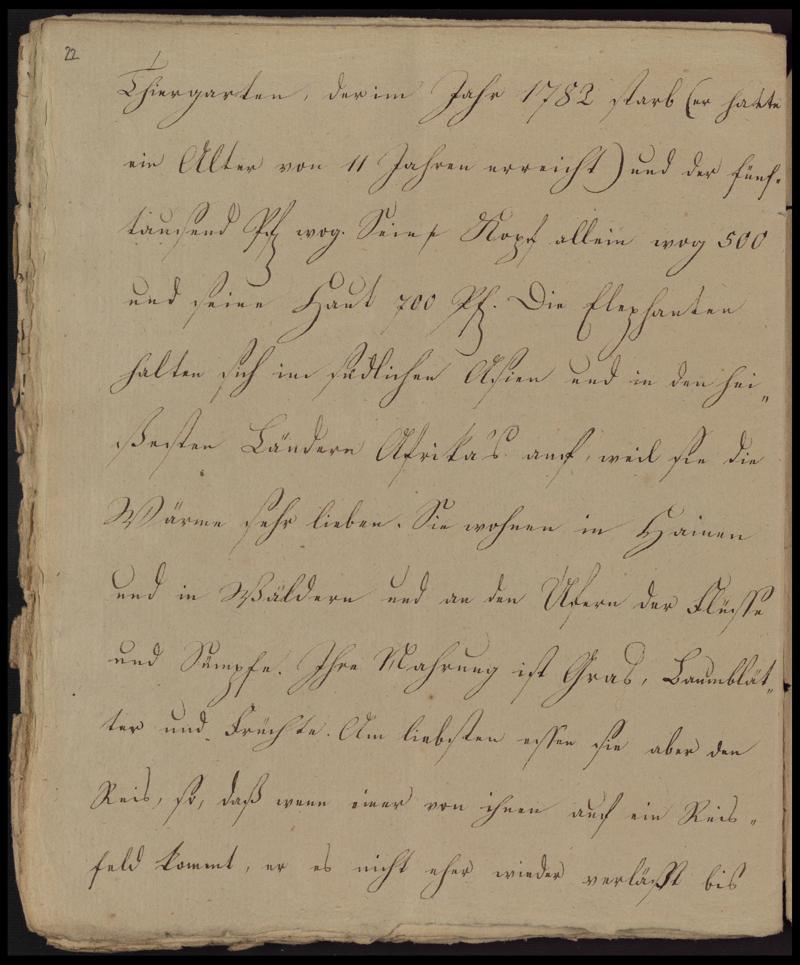 22
Thiergarten, der im Jahr 1782 starb (er hatte
ein Alter von 11 Jahren erreicht) und der fünf-
tausend Pf wog. Sein Kopf allein wog 500
und seine Haut 700 Pf. Die Elephanten
halten sich im südlichen Asien und in den hei„
ßesten Ländern Afrika's auf, weil sie die
Wärme sehr lieben. Sie wohnen in Hainen
und in Wäldern und an den Ufern der Flüsse
und Sümpfe. Ihre Nahrung ist Gras, Baumblät„
ter und Früchte. Am liebsten essen sie aber den
Reis, so, daß wenn einer von ihnen auf ein Reis„
feld kommt, er es nicht eher wieder verläßt bis